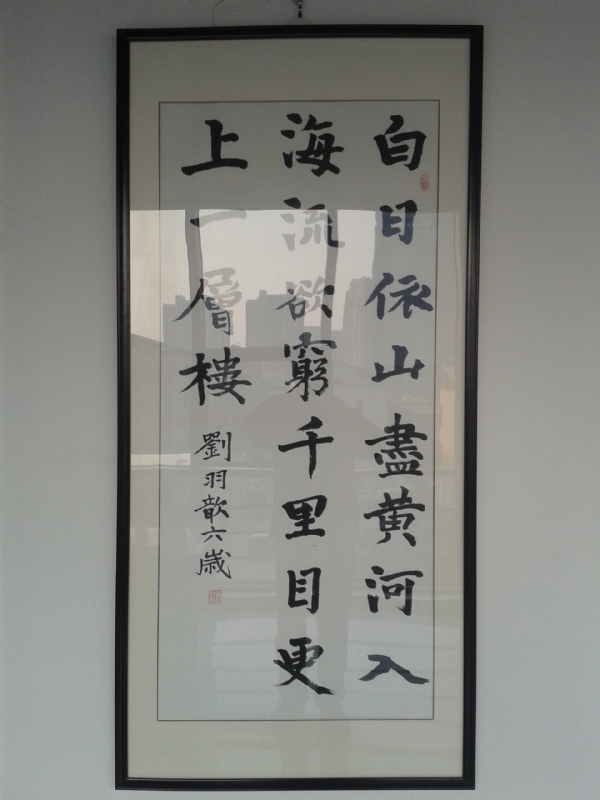 白日依山盡黄河入
海流欲窮千里目更
上一層樓
劉羽歆六歲